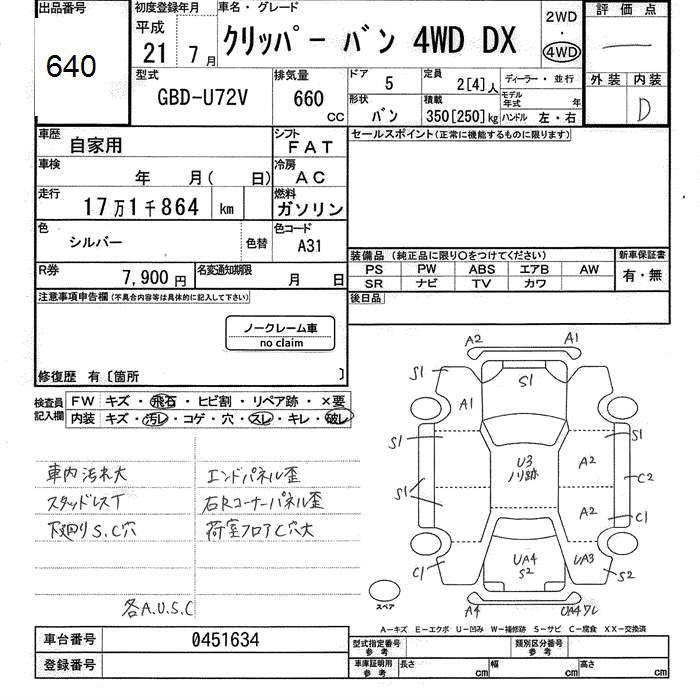 出品番号 初度登録年月 車名・グレード 2WD 評価点
640 平成 21 7月 クリッパー バン 4WD DX ・ 4WD —
型式 排気量 ドア 5 定員 2[4]人 ディーラー・並行 外装 内装
GBD-U72V 660 CC 形状 バン 積載 350[250]kg モデル年式 年 ハンドル 左・右 D
車歴 自家用 シフト FAT セールスポイント(正常に機能するものに限ります)
車検 年 月( 日) 冷房 AC
走行 17万1千864 km 燃料 ガソリン
色 シルバー 色替 色コード A31
装備品(純正品に限り○をつけてください) 新車保証書
R券 7,900円 名変通知期限 月 日 PS PW ABS エアB AW 有・無
SR ナビ TV カワ
注意事項申告欄(不具合内容等は具体的に記入して下さい) 後日品
ノークレーム車
no claim
修復歴 有〔箇所 〕
検査員記入欄 FW キズ・飛石・ヒビ割・リペア跡・×要
内装 キズ・汚レ・コゲ・穴・スレ・キレ・破レ
車内汚れ大 エンドパネル歪
スタッドレスT 右Rコーナーパネル歪
下廻りS.C穴 荷室フロアC穴大
各A.U.S.C
A2 A1
S1 S1
A1
S1 S1
U3 ノリ跡 A2 C2
S1
A2 C1
UA4 S2 UA3
C1 S2
スペア A4 UA4ワレ
A—キズ E—エクボ U—凹み W—補修跡 S—サビ C—腐食 XX—交換済
車台番号 0451634 型式指定番号 参考 類別区分番号 参考
登録番号 車庫証明用 参考 長さ cm 幅 cm 高さ cm